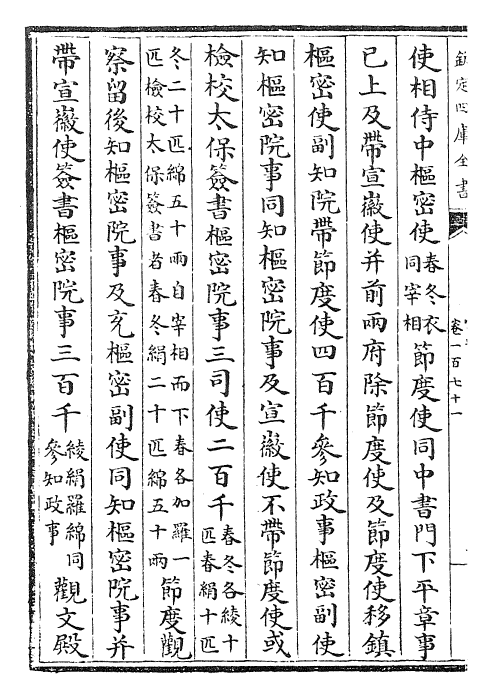 欽定四庫全書
卷一百七十一
使相侍中樞密使春冬衣同宰相節度使同中書門下平章事
已上及帶宣徽使并前兩府除節度使及節度使移鎮
樞密使副知院帶節度使四百千參知政事樞密副使
知樞密院事同知樞密院事及宣徽使不帶節度使或
檢校太保簽書樞密院事三司使二百千春冬各綾十匹春絹十匹
冬二十匹綿五十兩自宰相而下春各加羅一匹檢校太保簽書者春冬絹二十匹綿五十兩節度觀
察留後知樞密院事及充樞密副使同知樞密院事并
帶宣徽使簽書樞密院事三百千綾絹羅綿同參知政事觀文殿